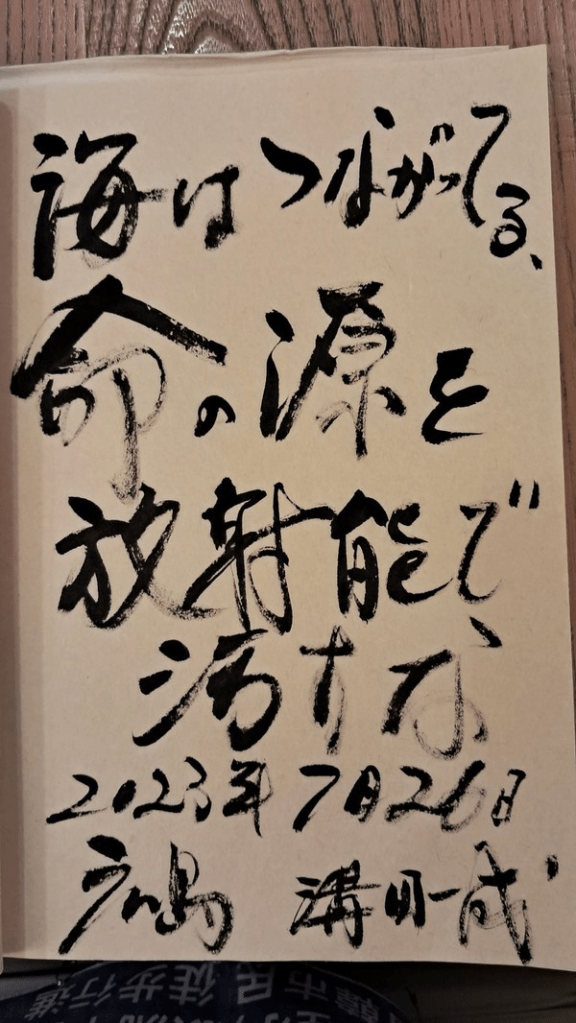 海はつながってる、
命の源を
放射能で
汚すな
2023年 7月26日
広島 溝田一成
韓市民徒歩行進